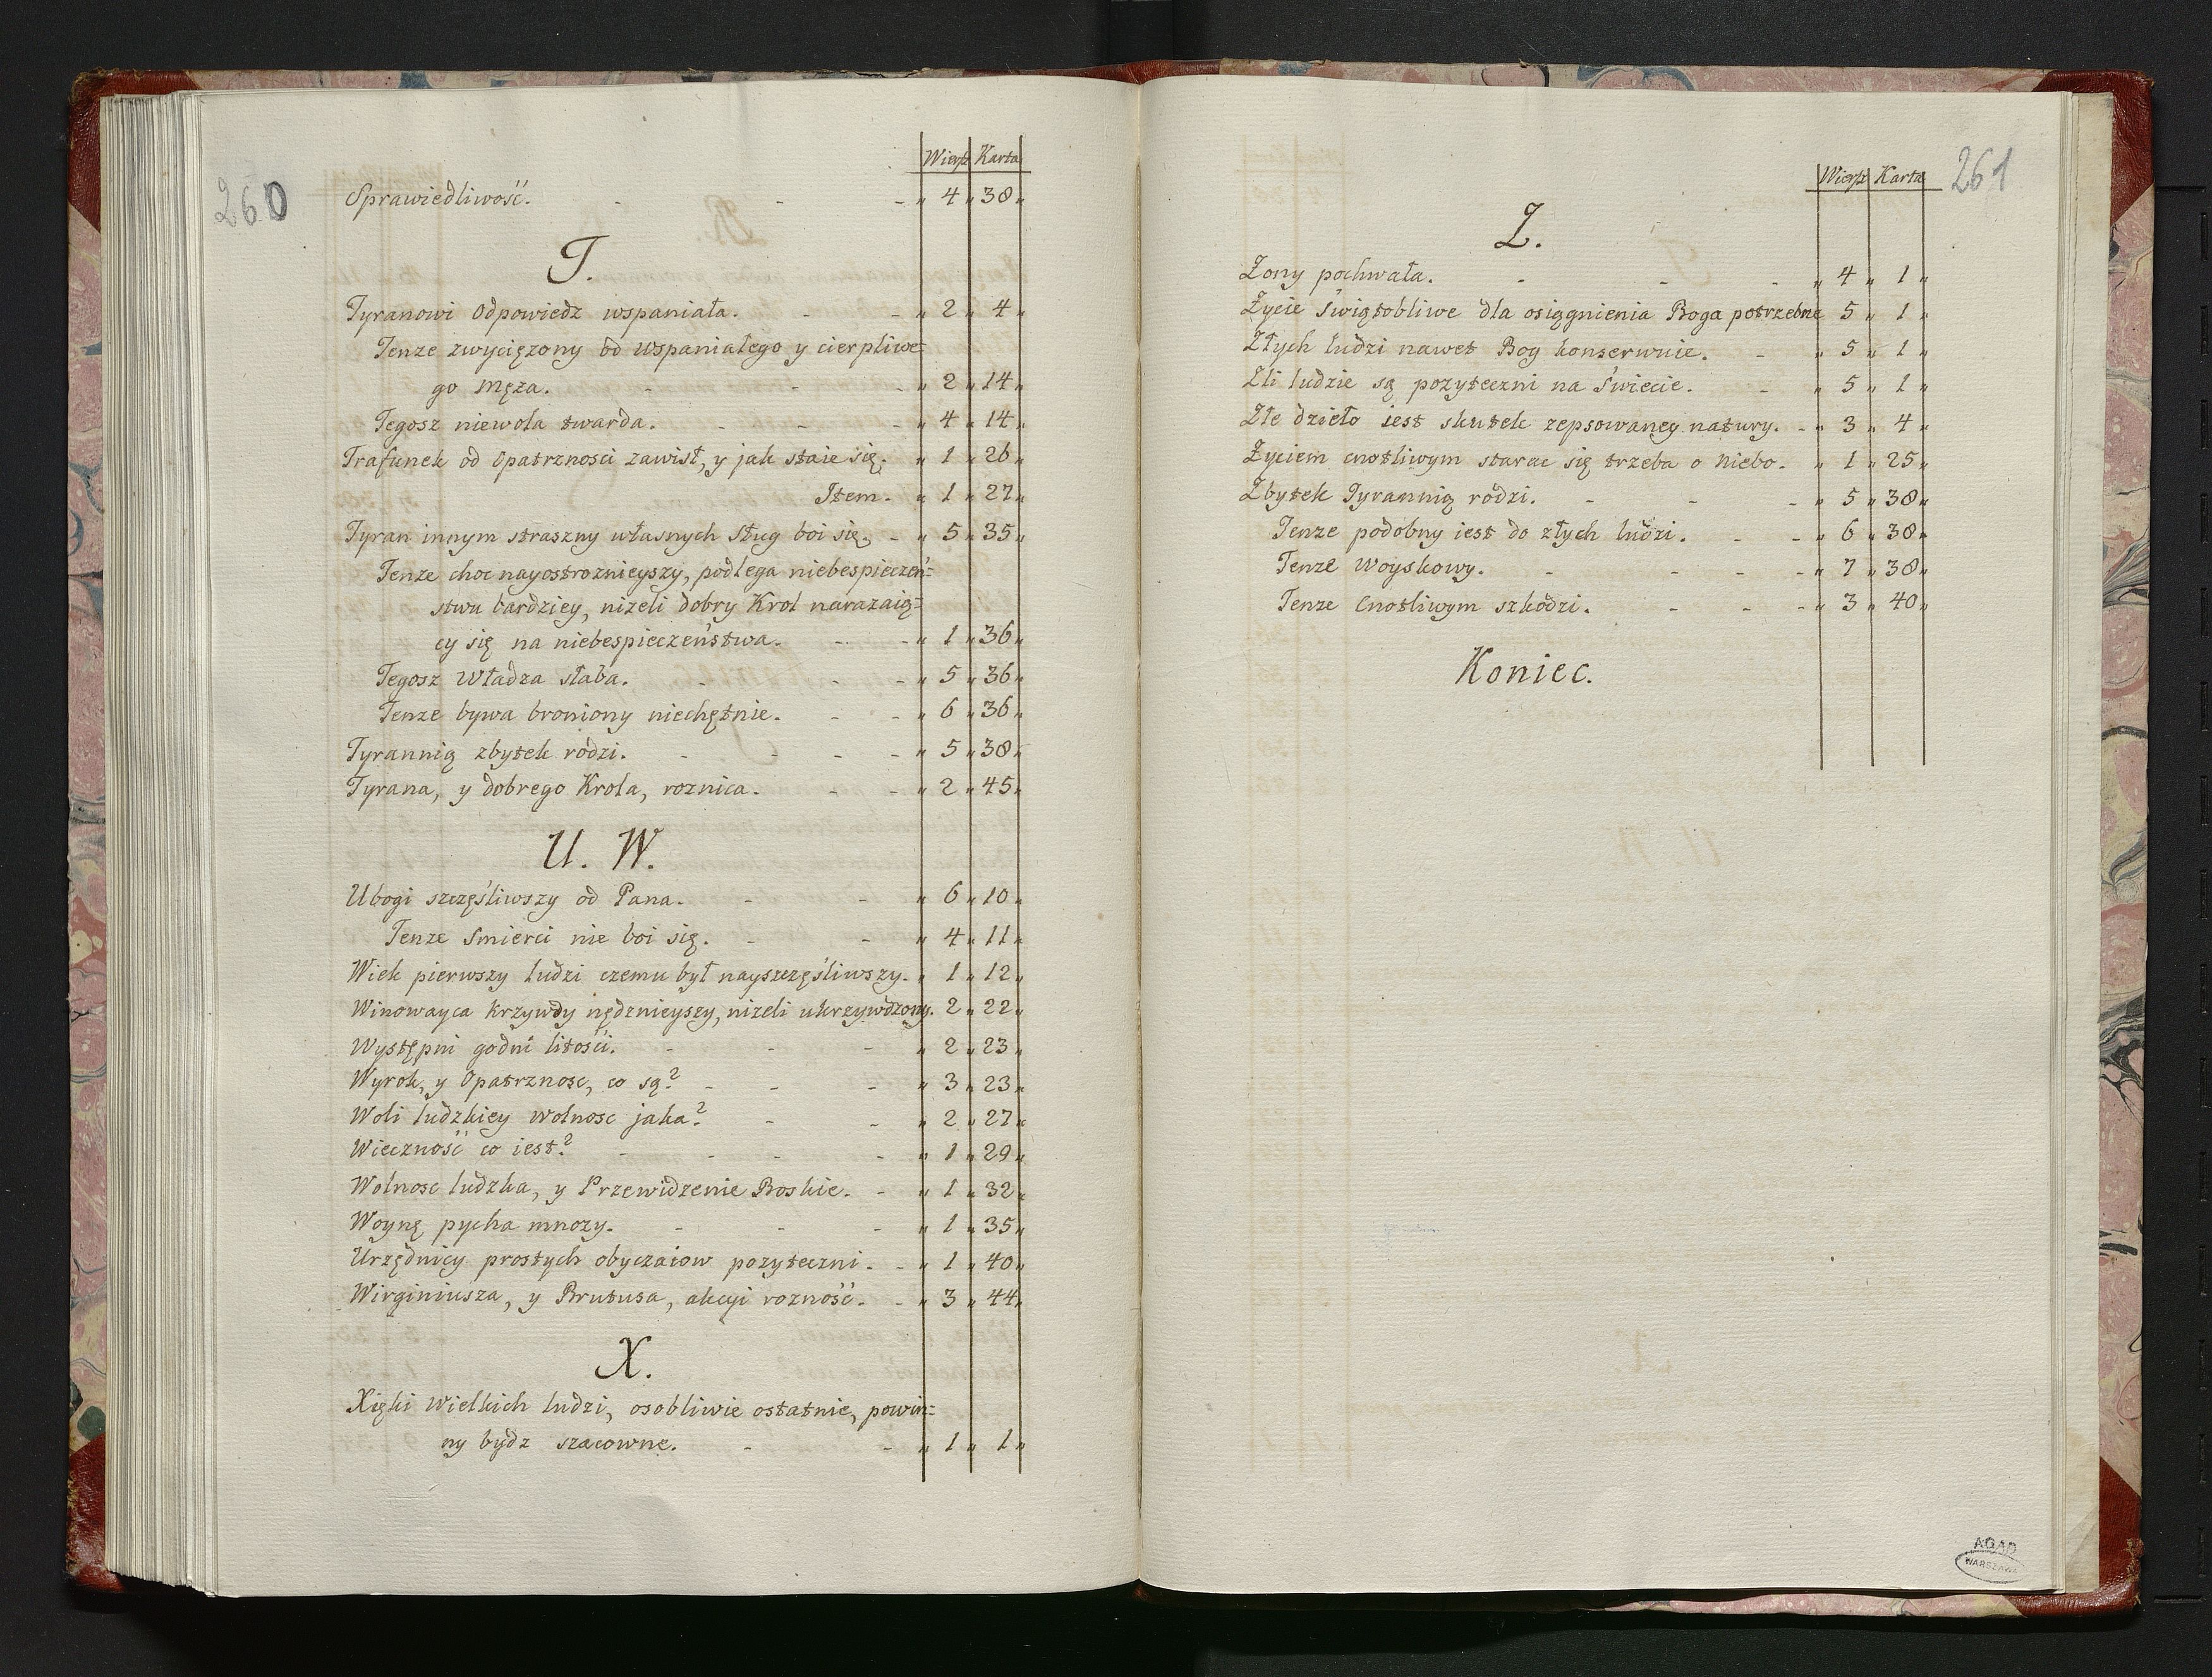 260
Wiersz Karta
Sprawiedliwość. - - - " 4 " 38 "
T.
Tyranowi Odpowiedz wspaniała. - - " 2 " 4 "
Tenze zwyciężony od wspaniałego y cierpliwe=
go Męża. - - - " 2 " 14 "
Tegosz niewola twarda. - - - " 4 " 14 "
Trafunek od Opatrznosci zawisł, y jak staie się. " 1 " 26 "
Item. " 1 " 27 "
Tyran innym straszny własnych Sług boi się. - " 5 " 35 "
Tenze choc nayostroznieyszy, podlega niebespieczeń=
stwu bardziey, nizeli dobry Krol narazaią=
cy się na niebespieczeństwa. - - " 1 " 36 "
Tegosz Władza słaba. - - - " 5 " 36 "
Tenze bywa broniony niechętnie. - - " 6 " 36 "
Tyrannią zbytek rodzi. - - - - " 5 " 38 "
Tyrana, y dobrego Krola, roznica. - - " 2 " 45 "
U. W.
Ubogi szczęśliwszy od Pana. - - " 6 " 10 "
Tenze Smierci nie boi się. - - " 4 " 11 "
Wiek pierwszy ludzi czemu był nayszczęśliwszy. " 1 " 12 "
Winowayca krzywdy nędznieyszy, nizeli ukrzywdzony. 2 " 22 "
Występni godni litości. - - - " 2 " 23 "
Wyrok, y Opatrznosc, co są? - - - " 3 " 23 "
Woli ludzkiey wolnosc jaka? - - " 2 " 27 "
Wieczność co iest? - - - - " 1 " 29 "
Wolnosc ludzka, y Przewidzenie Boskie. - " 1 " 32 "
Woynę pycha mnozy. - - - " 1 " 35 "
Urzędnicy prostych obyczaiow pozyteczni. - " 1 " 40 "
Wirginiusza, y Brutusa, akcyi rozność. - " 3 " 44 "
X.
Xięki Wielkich ludzi, osobliwie ostatnie, powin=
ny bydz szacowne. - - " 1 " 1 "
261
Wiersz Karta
Z.
Zony pochwała. - - - " 4 " 1 "
Zycie Swiątobliwe dla osiągnienia Boga potrzebne 5 " 1 "
Złych ludzi nawet Bog konserwuie. - " 5 " 1 "
Zli ludzie są pozyteczni na Swiecie. - " 5 " 1 "
Złe dzieło iest skutek zepsowaney natury. - " 3 " 4 "
Zyciem cnotliwym starac się trzeba o Niebo. " 1 " 25 "
Zbytek Tyrannią rodzi. - - - " 5 " 38 "
Tenze podobny iest do złych ludzi. - - " 6 " 38 "
Tenze Woyskowy. - - - - " 7 " 38 "
Tenze Cnotliwym szkodzi. - - - " 3 " 40 "
Koniec.
AGAD
WARSZAWA